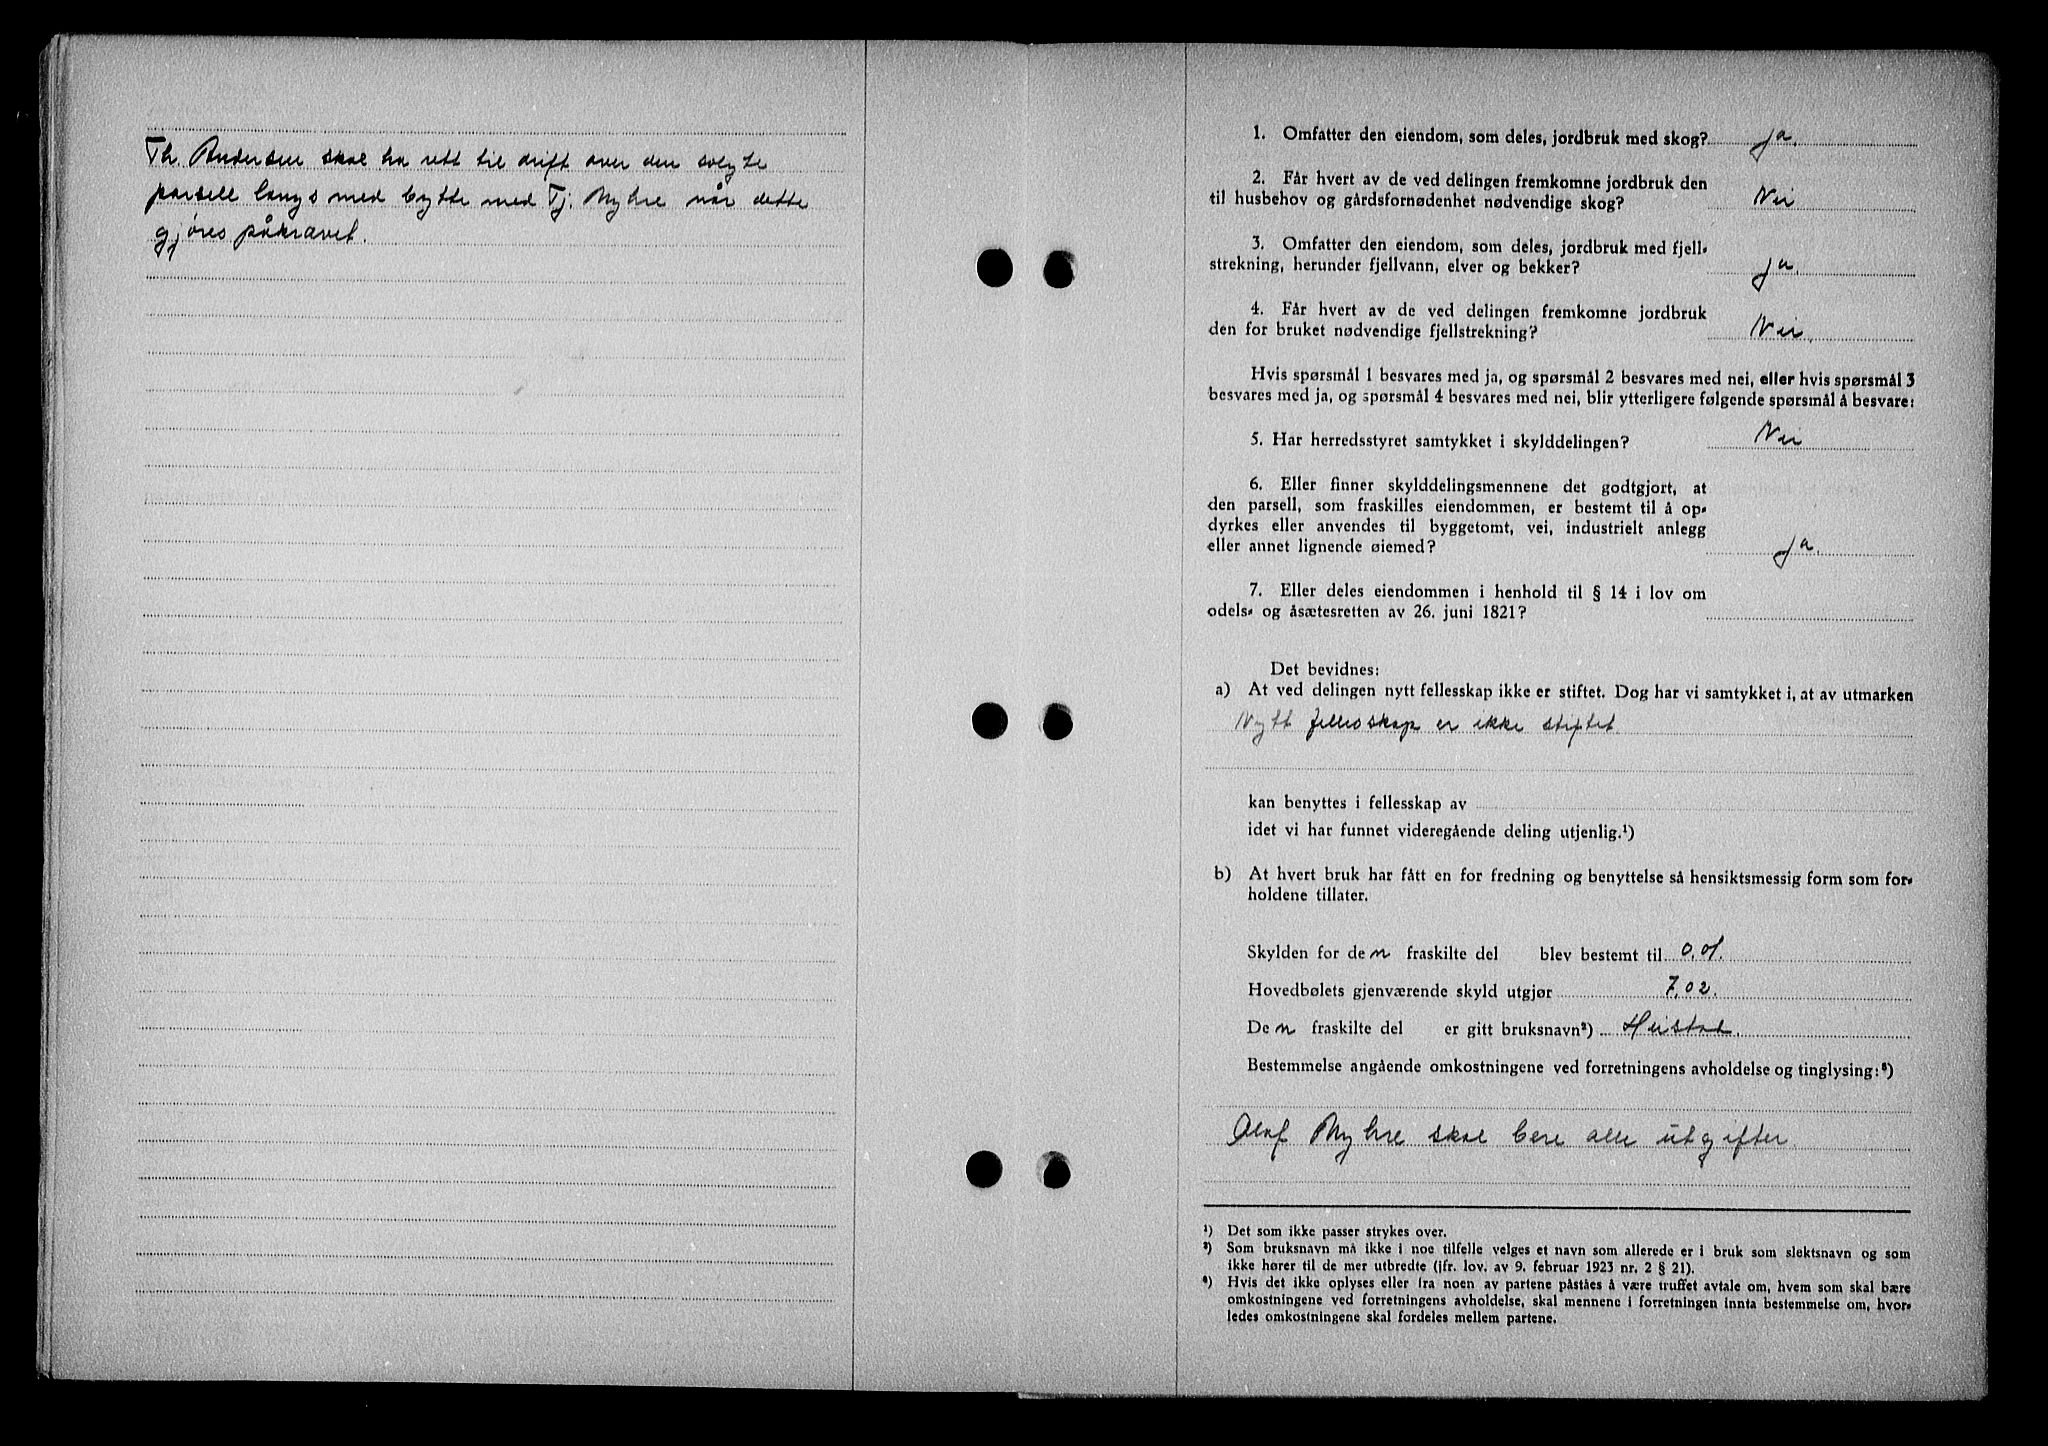 Th. Andersen skal ha rett til drift over den solgte
parsell langs med bytte med Tj. Myhre når dette
gjøres påkrævet.
1. Omfatter den eiendom, som deles, jordbruk med skog? ja.
2. Får hvert av de ved delingen fremkomne jordbruk den
til husbehov og gårdsfornødenhet nødvendige skog? Nei
3. Omfatter den eiendom, som deles, jordbruk med fjell-
strekning, herunder fjellvann, elver og bekker? ja.
4. Får hvert av de ved delingen fremkomne jordbruk
den for bruket nødvendige fjellstrekning? Nei.
Hvis spørsmål 1 besvares med ja, og spørsmål 2 besvares med nei, eller hvis spørsmål 3
besvares med ja, og spørsmål 4 besvares med nei, blir ytterligere følgende spørsmål å besvare:
5. Har herredsstyret samtykket i skylddelingen? Nei
6. Eller finner skylddelingsmennene det godtgjort, at
den parsell, som fraskilles eiendommen, er bestemt til å op-
dyrkes eller anvendes til byggetomt, vei, industrielt anlegg
eller annet lignende øiemed? ja.
7. Eller deles eiendommen i henhold til § 14 i lov om
odels- og åsætesretten av 26. juni 1821?
Det bevidnes:
a) At ved delingen nytt fellesskap ikke er stiftet. Dog har vi samtykket i, at av utmarken
Nytt fellesskap er ikke stiftet.
kan benyttes i fellesskap av
idet vi har funnet videregående deling utjenlig.¹)
b) At hvert bruk har fått en for fredning og benyttelse så hensiktsmessig form som for-
holdene tillater.
Skylden for den fraskilte del blev bestemt til 0,01.
Hovedbølets gjenværende skyld utgjør 7,02.
Den fraskilte del er gitt bruksnavn²) Heistad.
Bestemmelse angående omkostningene ved forretningens avholdelse og tinglysing:³)
Olaf Myhre skal bere alle utgifter.
¹) Det som ikke passer strykes over.
²) Som bruksnavn må ikke i noe tilfelle velges et navn som allerede er i bruk som slektsnavn og som
ikke hører til de mer utbredte (jfr. lov. av 9. februar 1923 nr. 2 § 21).
³) Hvis det ikke oplyses eller fra noen av partene påståes å være truffet avtale om, hvem som skal bære
omkostningene ved forretningens avholdelse, skal mennene i forretningen innta bestemmelse om, hvor-
ledes omkostningene skal fordeles mellem partene.